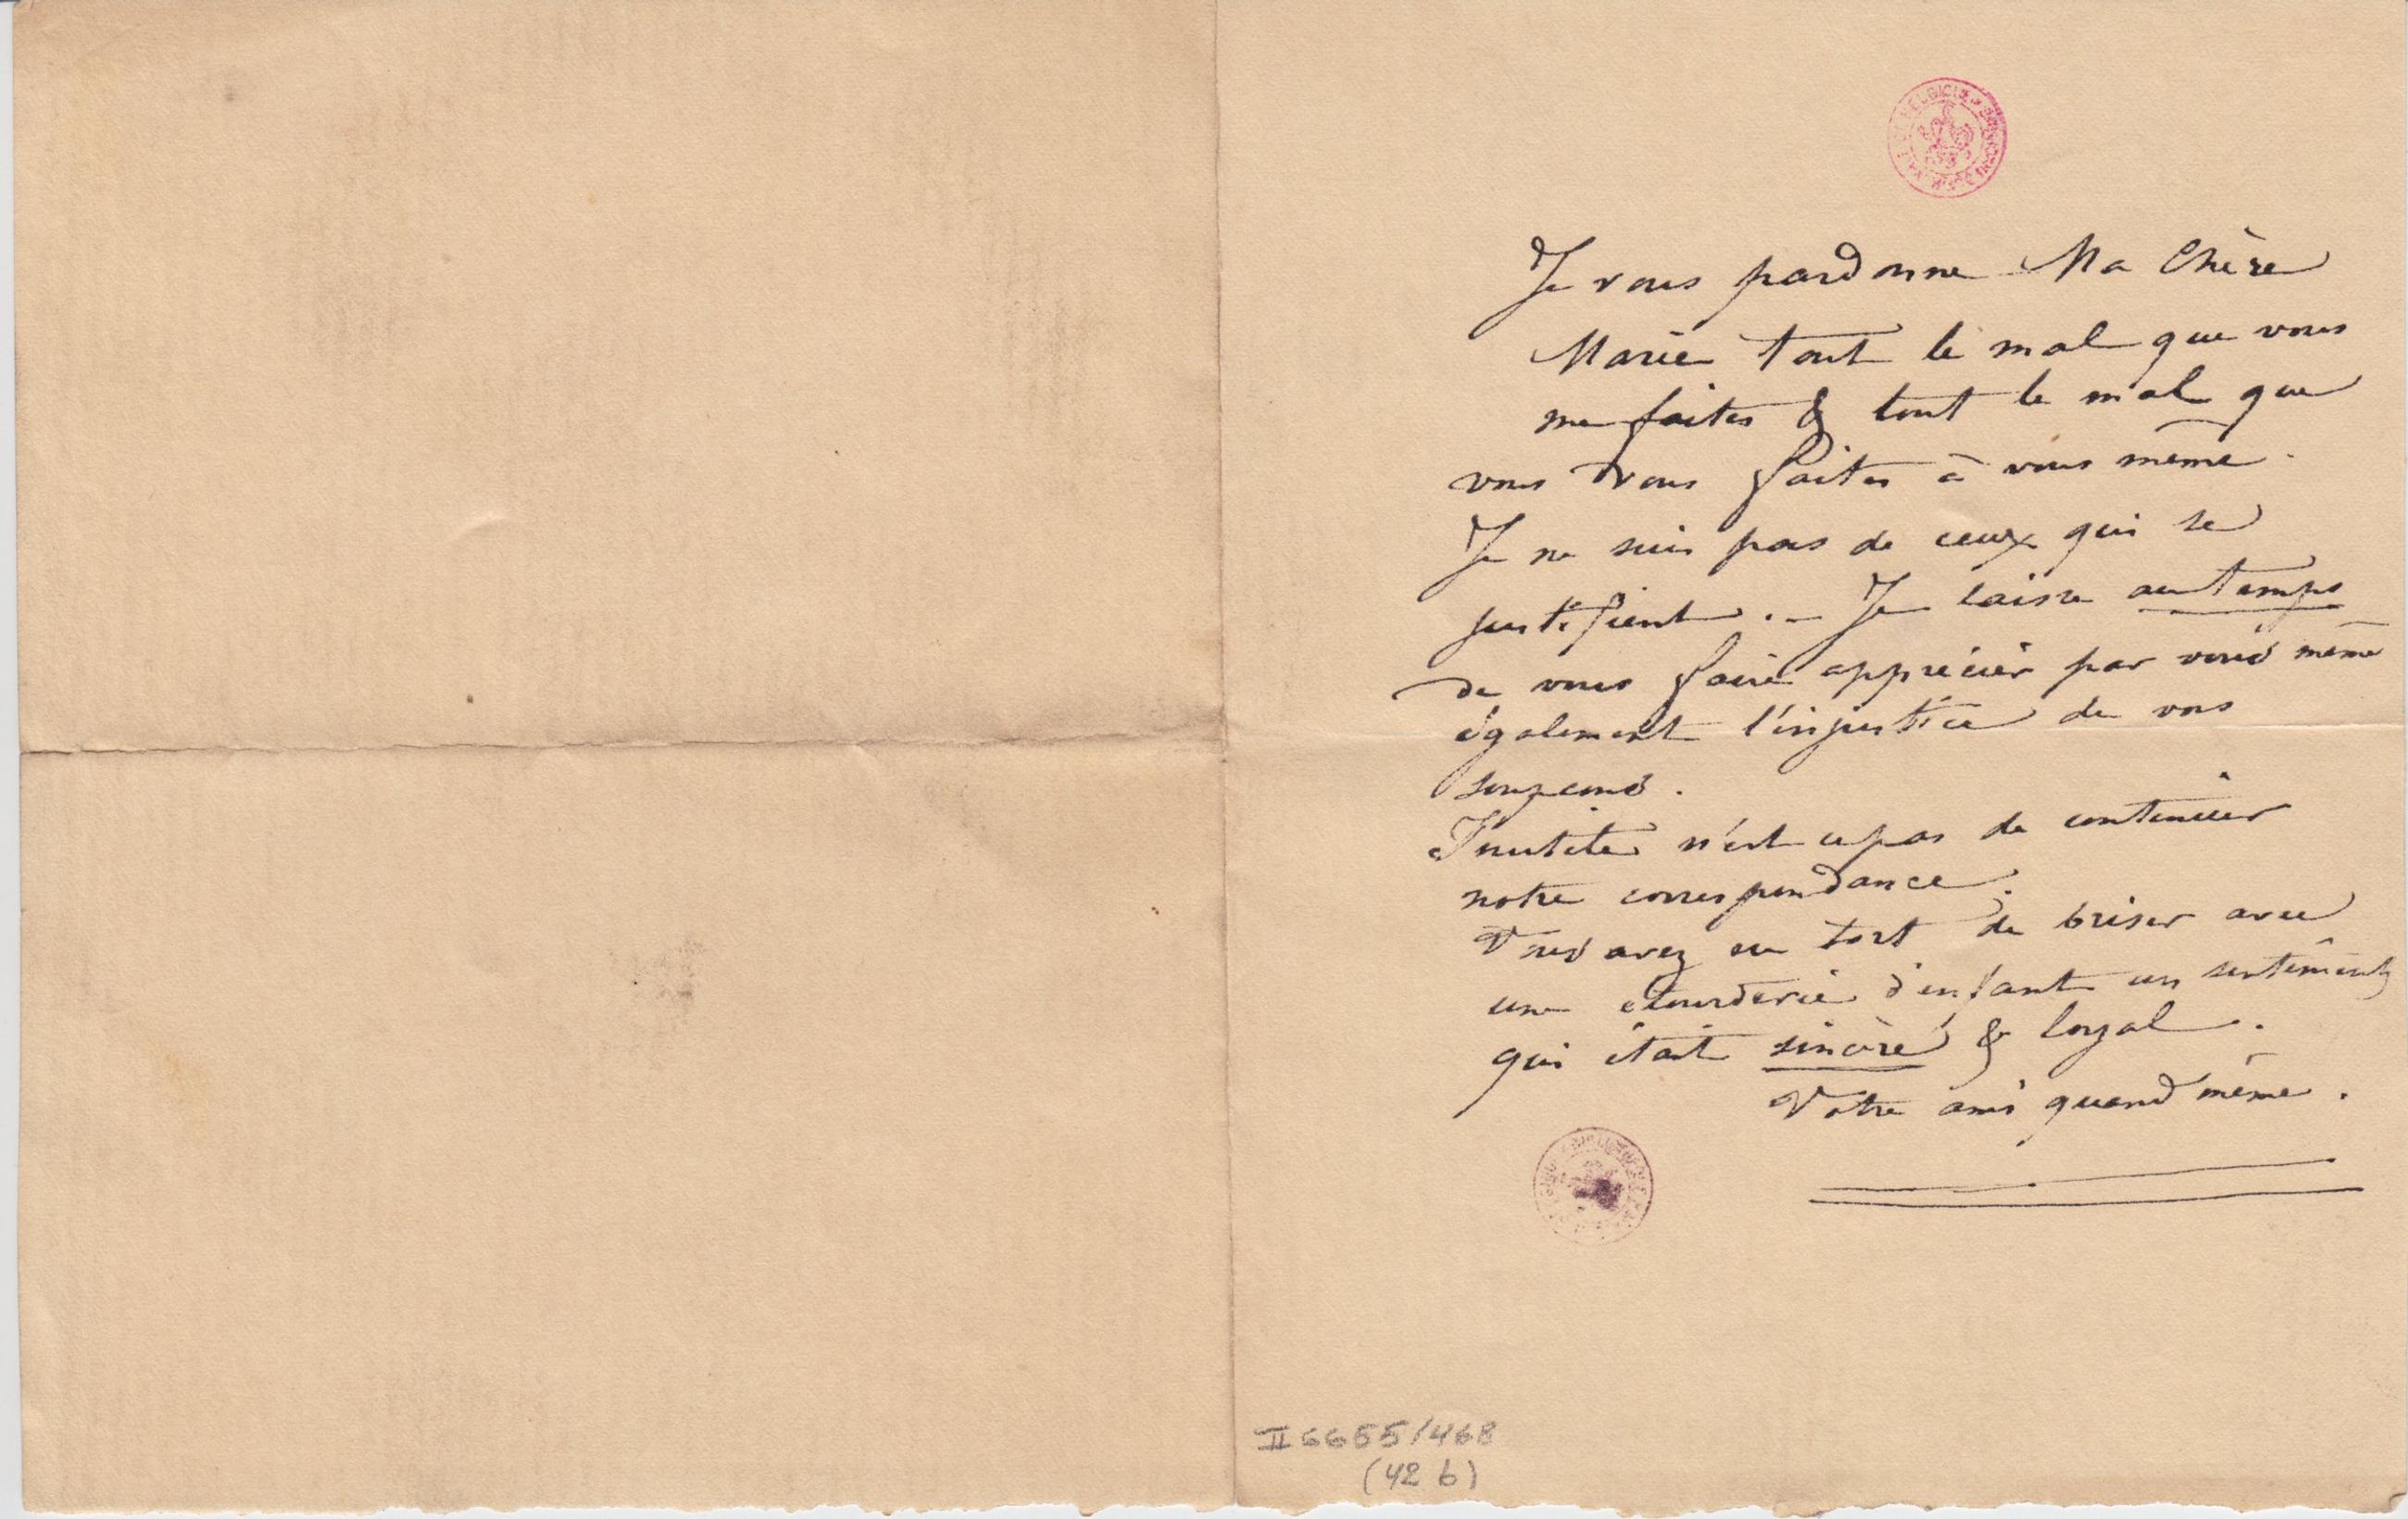 Je vous pardonne Ma Chère
Marie tout le mal que vous
me faites & tout le mal que
vous vous faites à vous même.
Je ne suis pas de ceux qui se
justifient. – Je laisse au temps
de vous faire apprécier par vous même
également l'injustice de vos
soupçons.
Inutile n'est ce pas de continuer
notre correspondance.
Vous avez eu tort de briser avec
une étourderie d'enfant un sentiment
qui était sincère & loyal.
Votre ami quand même.
II 6655/468
(42 b)